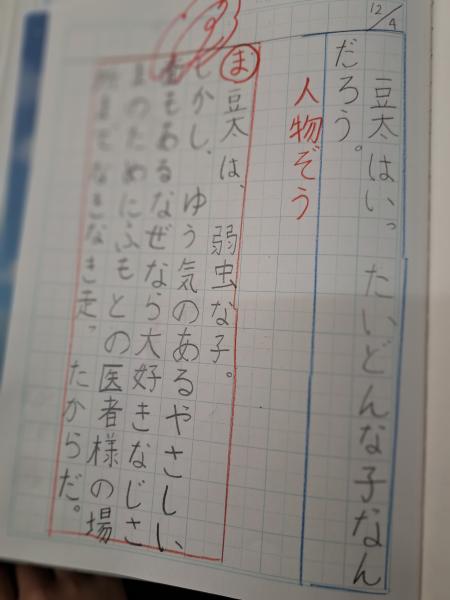 12/4
豆太はいったいどんな子なん
だろう。
人物ぞう
ま 豆太は、弱虫な子。
しかし、ゆう気のあるやさしい
面もあるなぜなら大好きなじさ
まのためにふもとの医者様の場
所までなきなき走ったからだ。